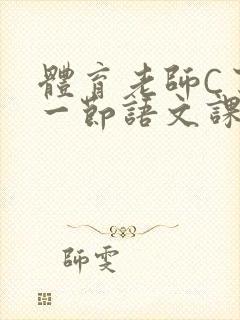 體育老師C
一節語文課
師雯